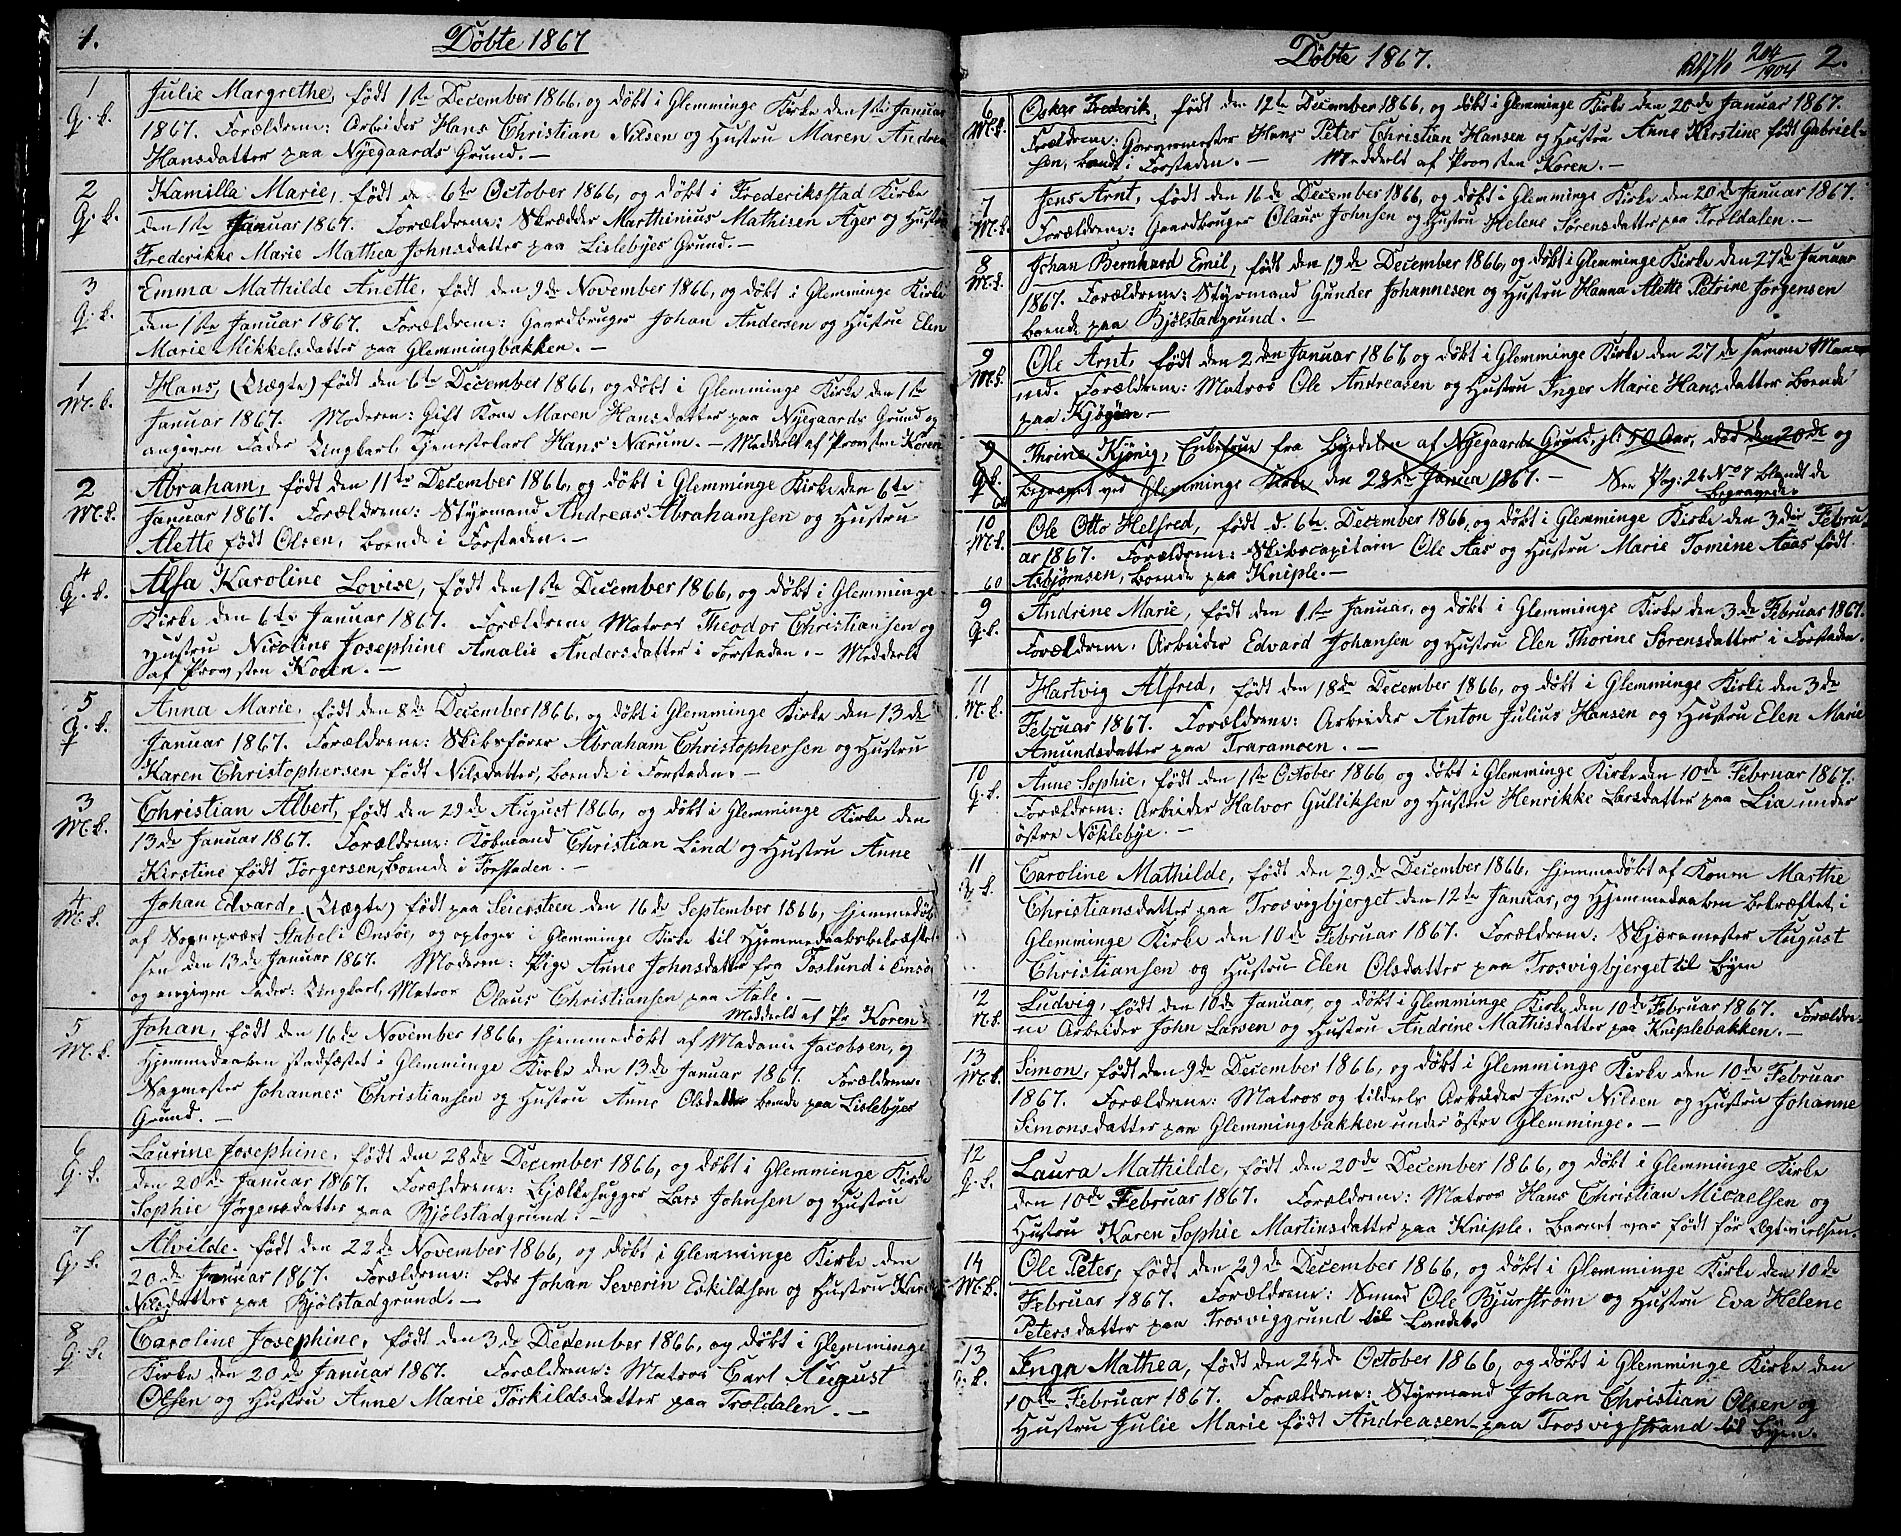 1.
Döbte 1867
1
Q. k.
Julie Margrethe, födt 1ste December 1866, og döbt i Glemminge Kirke den 1ste Januar
1867. Forældrene: Arbeider Hans Christian Nilsen og Hustru Maren Andrea
Hansdatter paa Nyegaards Grund. —
2
Q. k.
Kamilla Marie, födt den 6te October 1866, og döbt i Frederiksstad Kirke
den 1ste Januar 1867. Forældrene: Skredder Marthinius Mathisen Ager og Hustru
Frederikke Marie Mathea Johnsdatter paa Lislebyes Grund. —
3
Q. k.
Emma Mathilde Anette, födt den 9de November 1866, og döbt i Glemminge Kirke
den 1ste Januar 1867. Forældrene: Gaardbruger Johan Andersen og Hustru Elen
Marie Mikkelsdatter paa Glemmingbakken. —
1
M. k.
Hans, (Uægte) födt den 6te December 1866, og döbt i Glemminge Kirke den 1ste
Januar 1867. Moderen: Gift Kone Maren Hansdatter paa Nyegaards Grund og
angiven Fader Ungkarl Tjenestekarl Hans Narum. — Meddelt af Provsten Koren
2
M. k.
Abraham, födt den 11te December 1866, og döbt i Glemminge Kirke den 6te
Januar 1867. Forældrene: Styrmand Andreas Abrahamsen og Hustru
Alette födt Olsen, boende i Forstaden. —
4
Q. k.
Alfa Karoline Lovise, födt den 1ste December 1866, og döbt i Glemminge
Kirke den 6te Januar 1867. Forældrene Matros Theodor Christiansen og
Hustru Nicoline Josephine Amalie Andersdatter i Forstaden. — Meddelt
af Provsten Koren. —
5
Q. k.
Anna Marie, födt den 8de December 1866, og döbt i Glemminge Kirke den 13de
Januar 1867. Forældrene: Skibsförer Abraham Christophersen og Hustru
Karen Christophersen födt Nilsdatter, boende i Forstaden. —
3
M. k.
Christian Albert, födt den 29de August 1866, og döbt i Glemminge Kirke den
13de Januar 1867. Forældrene: Köbmand Christian Lind og Hustru Anne
Kirstine födt Törgersen, boende i Forstaden. —
4
M. k.
Johan Edvard, (Uægte) födt paa Seiersteen den 16de September 1866, hjemmedöbt
af Sognepræst Stabel i Onsöe, og optages i Glemminge Kirke til Hjemmedaabsbekræftel-
sen den 13de Januar 1867. Moderen: Pige Anne Johnsdatter fra Foslund i Onsöe
og angiven Fader: Ungkarl, Matros Olaus Christiansen paa Aale. —
Meddelt af Pr Koren
5
M. k.
Johan, födt den 16de November 1866, hjemmedöbt af Madame Jacobsen, og
Hjemmedaaben stadfæstet i Glemminge Kirke den 13de Januar 1867. Forældrene:
Sagmester Johannes Christiansen og Hustru Anne Olsdatter boende paa Lislebyes
Grund. —
6
Q. k.
Laurine Josephine, födt den 28de December 1866, og döbt i Glemminge Kirke
den 20de Januar 1867. Forældrene: Bjælkehugger Lars Johnsen og Hustru
Sophie Jörgensdatter paa Bjölstadgrund. —
7
Q. k.
Alvilde, födt den 22de November 1866, og döbt i Glemminge Kirke den
20de Januar 1867. Forældrene: Lods Johan Severin Eskildsen og Hustru Karen
Nilsdatter paa Bjölstadgrund. —
8
Q. k.
Caroline Josephine, födt den 3de December 1866, og döbt i Glemminge
Kirke den 20de Januar 1867. Forældrene: Matros Carl August
Olsen og Hustru Anne Marie Törkildsdatter paa Troldalen. —
Döbte 1867.
204/1904
2.
6
M. k.
Oskar Frederik, födt den 12te December 1866, og döbt i Glemminge Kirke den 20de Januar 1867.
Forældrene: Garvermester Hans Peter Christian Hansen og Hustru Anne Kirstine födt Gabriel-
sen, boende i Forstaden. — Meddelt af Provsten Koren. —
7
M. k.
Jens Arnt, födt den 16de December 1866, og döbt i Glemminge Kirke den 20de Januar 1867.
Forældrene: Gaardbruger Olaus Johnsen og Hustru Helene Sörensdatter paa Troldalen. —
8
M. k.
Johan Bernhard Emil, födt den 19de December 1866, og döbt i Glemminge Kirke den 27de Januar
1867. Forældrene: Styrmand Gunder Johannesen og Hustru Hanna Alette Petrine Jörgensen
boende paa Bjölstadgrund. —
9
M. k.
Ole Arnt, födt den 2den Januar 1867 og döbt i Glemminge Kirke den 27de samme Maa-
ned. Forældrene: Matros Ole Andreasen og Hustru Inger Marie Hansdatter boende
paa Kjögön. —
9
Q. k.
Thrine Kjönig, Enkefrue fra Byedelen af Nyegaards Grund, gl: 50 Aar, död den 20de og
begravet ved Glemminge Kirke den 28de Januar 1867. — See Pag: 26 No 7 blandt de
Begravede.
10
M. k.
Ole Otto Helfred, födt d. 6te December 1866, og döbt i Glemminge Kirke den 3die Febru-
ar 1867. Forældrene: Skibscapitain Ole Aas og Hustru Marie Tomine Aaas födt
Asbjörnsen, boende paa Kniple. —
60
9
Q. k.
Andrine Marie, födt den 1ste Januar, og döbt i Glemminge Kirke den 3de Februar 1867.
Forældrene: Arbeider Edvard Johansen og Hustru Elen Thorine Sörensdatter i Forstaden.
11
M. k.
Hartvig Alfred, födt den 18de December 1866, og döbt i Glemminge Kirke den 3de
Februar 1867. Forældrene: Arbeider Anton Julius Hansen og Hustru Elen Marie
Amundsdatter paa Traramoen. —
10
Q. k.
Anne Sophie, födt den 1ste October 1866 og döbt i Glemminge Kirke den 10de Februar 1867.
Forældrene: Arbeider Halvor Gulliksen og Hustru Henrikke Larsdatter paa Lia under
östre Nöklebye. —
11
Q. k.
Caroline Mathilde, födt den 29de December 1866, hjemmedöbt af Konen Marthe
Christiansdatter paa Trosvigbjerget den 12te Januar, og Hjemmedaaben bekræftet i
Glemminge Kirke den 10de Februar 1867. Forældrene: Skjæremester August
Christiansen og Hustru Elen Olsdatter paa Trosvigbjerget til Byen
12
M. k.
Ludvig, födt den 10de Januar, og döbt i Glemminge Kirke den 10de Februar 1867. Forældre-
ne Arbeider John Larsen og Hustru Andrine Mathisdatter paa Kniplebakken. —
13
M. k.
Simon, födt den 9de December 1866, og döbt i Glemminge Kirke den 10de Februar
1867. Forældrene: Matros og tildels Arbeider Jens Nilsen og Hustru Johanne
Simonsdatter paa Glemmingbakken under östre Glemminge. —
12
Q. k.
Laura Mathilde, födt den 20de December 1866, og döbt i Glemminge Kirke
den 10de Februar 1867. Forældrene: Matros Hans Christian Micaelsen og
Hustru Karen Sophie Martinsdatter paa Kniple. Barnet var födt för Egtevielsen.
14
M. k.
Ole Peter, födt den 29de December 1866, og döbt i Glemminge Kirke den 10de
Februar 1867. Forældrene: Smed Ole Bjurström og Hustru Eva Helene
Petersdatter paa Trosviggrund til Landet.
13
Q. k.
Inga Mathea, födt den 24de October 1866, og döbt i Glemminge Kirke den
10de Februar 1867. Forældrene: Styrmand Johan Christian Olsen og
Hustru Julie Marie födt Andreasen paa Trosvigstrand til Byen.